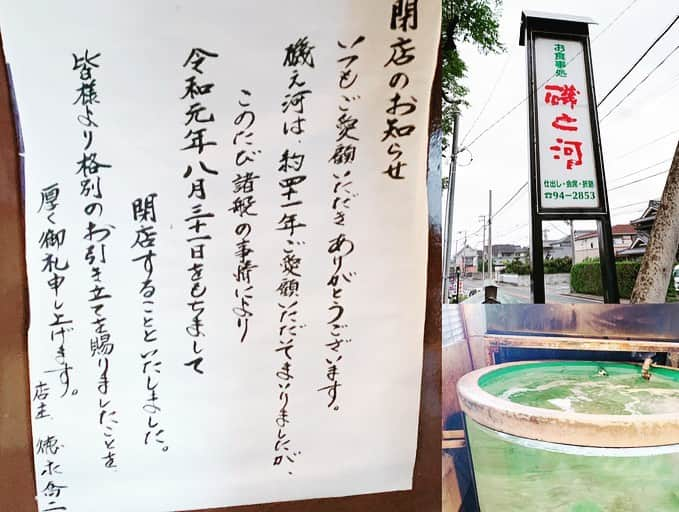 閉店のお知らせ
いつもご愛顧いただきありがとうございます。
磯と河は、約四十一年ご愛顧いただいてまいりましたが、
このたび諸般の事情により
令和元年八月三十一日をもちまして
閉店することといたしました。
皆様より格別のお引き立てを賜りましたことを
厚く御礼申し上げます。
店主
お食事処
磯と河
仕出し・会席・折詰
☎94-2853